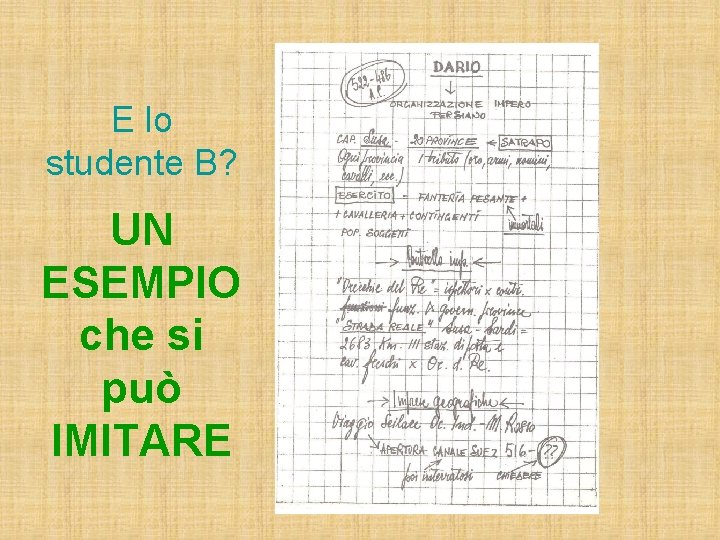 E lo
studente B?
UN
ESEMPIO
che si
può
IMITARE
DARIO
522-486
A.C.
ORGANIZZAZIONE IMPERO
PERSIANO
CAP. Susa - 20 PROVINCE ← SATRAPO
Ogni provincia 1 tributo (oro, armi, uomini,
cavalli, ecc.)
ESERCITO = FANTERIA PESANTE +
+ CAVALLERIA + CONTINGENTI immortali
POP. SOGGETTI
→ Controllo imp. ←
"Orecchie del Re" = ispettori x contr.
funzioni funz. & govern. province
"STRADA REALE" Susa - Sardi =
2683 Km. 111 staz. di posta e
cav. freschi x Or. d. Re.
→ Imprese geografiche ←
Viaggio Scilace Oc. Ind. - M. Rosso
→ APERTURA CANALE SUEZ 516 - ??
poi interratosi CHIEDERE